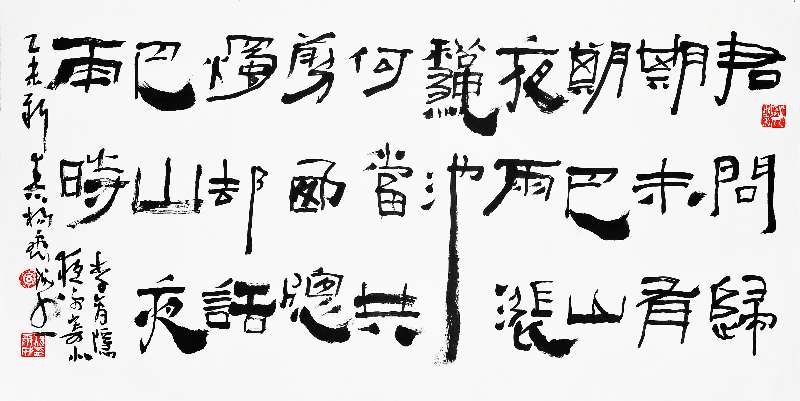 君問歸
期未有
期巴山
夜雨漲
龝池
何當共
剪西牕
燭却話
巴山夜
雨時
李商隱
夜雨寄北
乙未新